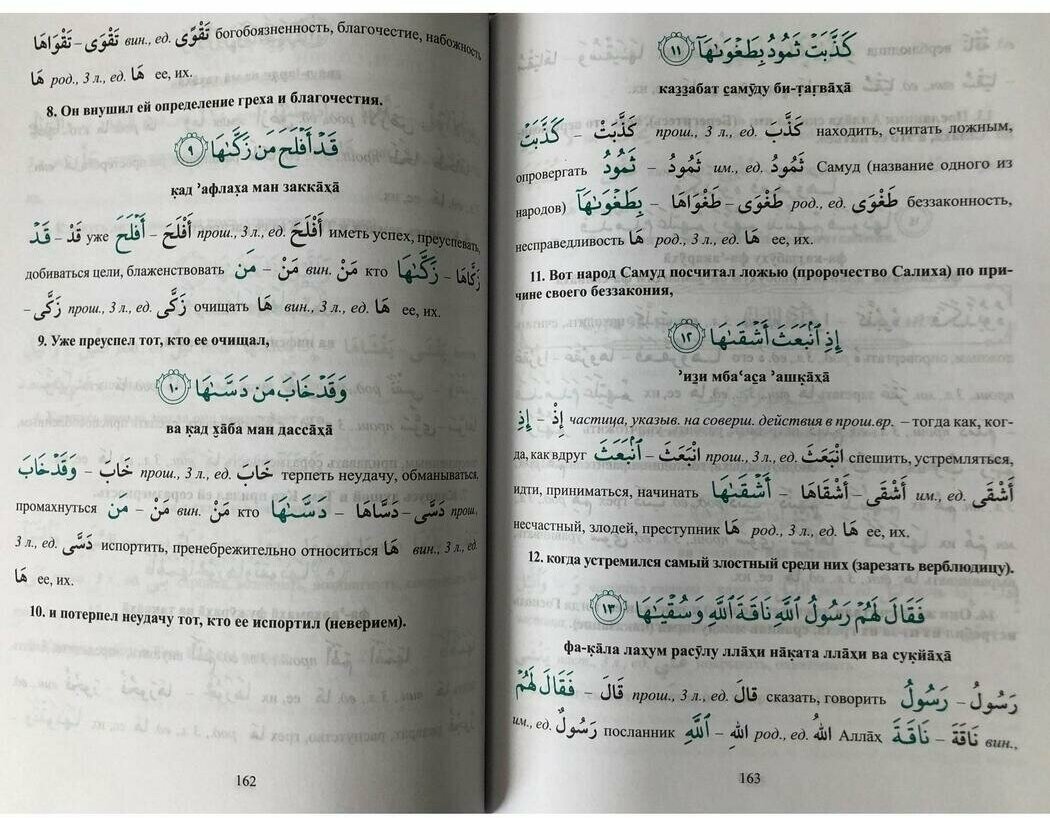 تَقْوَاهَا – تَقْوَى вин., ед. تَقْوًى богобоязненность, благочестие, набожность
هَا род., 3 л., ед. هَا ее, их.
8. Он внушил ей определение греха и благочестия.
قَدْ أَفْلَحَ مَن زَكَّىٰهَا ٩
қад ’афлаха ман заккāхā
قَدْ – قَدْ уже أَفْلَحَ – أَفْلَحَ прош., 3 л., ед. أَفْلَحَ иметь успех, преуспевать,
добиваться цели, блаженствовать مَن – مَنْ вин. مَنْ кто زَكَّىٰهَا – زَكَّاهَا
– زَكَّى прош., 3 л., ед. زَكَّى очищать هَا вин., 3 л., ед. هَا ее, их.
9. Уже преуспел тот, кто ее очищал,
وَقَدْ خَابَ مَن دَسَّىٰهَا ١٠
ва қад х̱āба ман дассāхā
وَقَدْ خَابَ – خَابَ прош., 3 л., ед. خَابَ терпеть неудачу, обманываться,
промахнуться مَن – مَنْ вин. مَنْ кто دَسَّىٰهَا – دَسَّاهَا – دَسَّى прош.,
3 л., ед. دَسَّى испортить, пренебрежительно относиться هَا вин., 3 л., ед.
هَا ее, их.
10. и потерпел неудачу тот, кто ее испортил (неверием).
162
كَذَّبَتْ ثَمُودُ بِطَغْوَىٰهَآ ١١
каз̱з̱абат с̱амӯду би-т̣аг̣вāхā
كَذَّبَتْ – كَذَّبَتْ прош., 3 л., ед. كَذَّبَ находить, считать ложным,
опровергать ثَمُودُ – ثَمُودُ им., ед. ثَمُودُ Самуд (название одного из
народов) بِطَغْوَىٰهَآ – طَغْوَاهَا – طَغْوَى род., ед. طَغْوَى беззаконность,
несправедливость هَا род., 3 л., ед. هَا ее, их.
11. Вот народ Самуд посчитал ложью (пророчество Салиха) по при-
чине своего беззакония,
إِذِ ٱنۢبَعَثَ أَشْقَىٰهَا ١٢
’из̱и мба‘ас̱а ’ашқāхā
إِذِ – إِذْ частица, указыв. на соверш. действия в прош.вр. – тогда как, ког-
да, как вдруг ٱنۢبَعَثَ – انْبَعَثَ прош., 3 л., ед. انْبَعَثَ спешить, устремляться,
идти, приниматься, начинать أَشْقَىٰهَا – أَشْقَاهَا – أَشْقَى им., ед. أَشْقَى
несчастный, злодей, преступник هَا род., 3 л., ед. هَا ее, их.
12. когда устремился самый злостный среди них (зарезать верблюдицу).
فَقَالَ لَهُمْ رَسُولُ ٱللَّهِ نَاقَةَ ٱللَّهِ وَسُقْيَـٰهَا ١٣
фа-қāла лахум расӯлу ллāхи нāқата ллāхи ва суқйāхā
فَقَالَ لَهُمْ – قَالَ прош., 3 л., ед. قَالَ сказать, говорить رَسُولُ – رَسُولُ
им., ед. رَسُولٌ посланник ٱللَّهِ – اللهِ род., ед. اللهُ Аллāх نَاقَةَ – نَاقَةَ вин.,
163